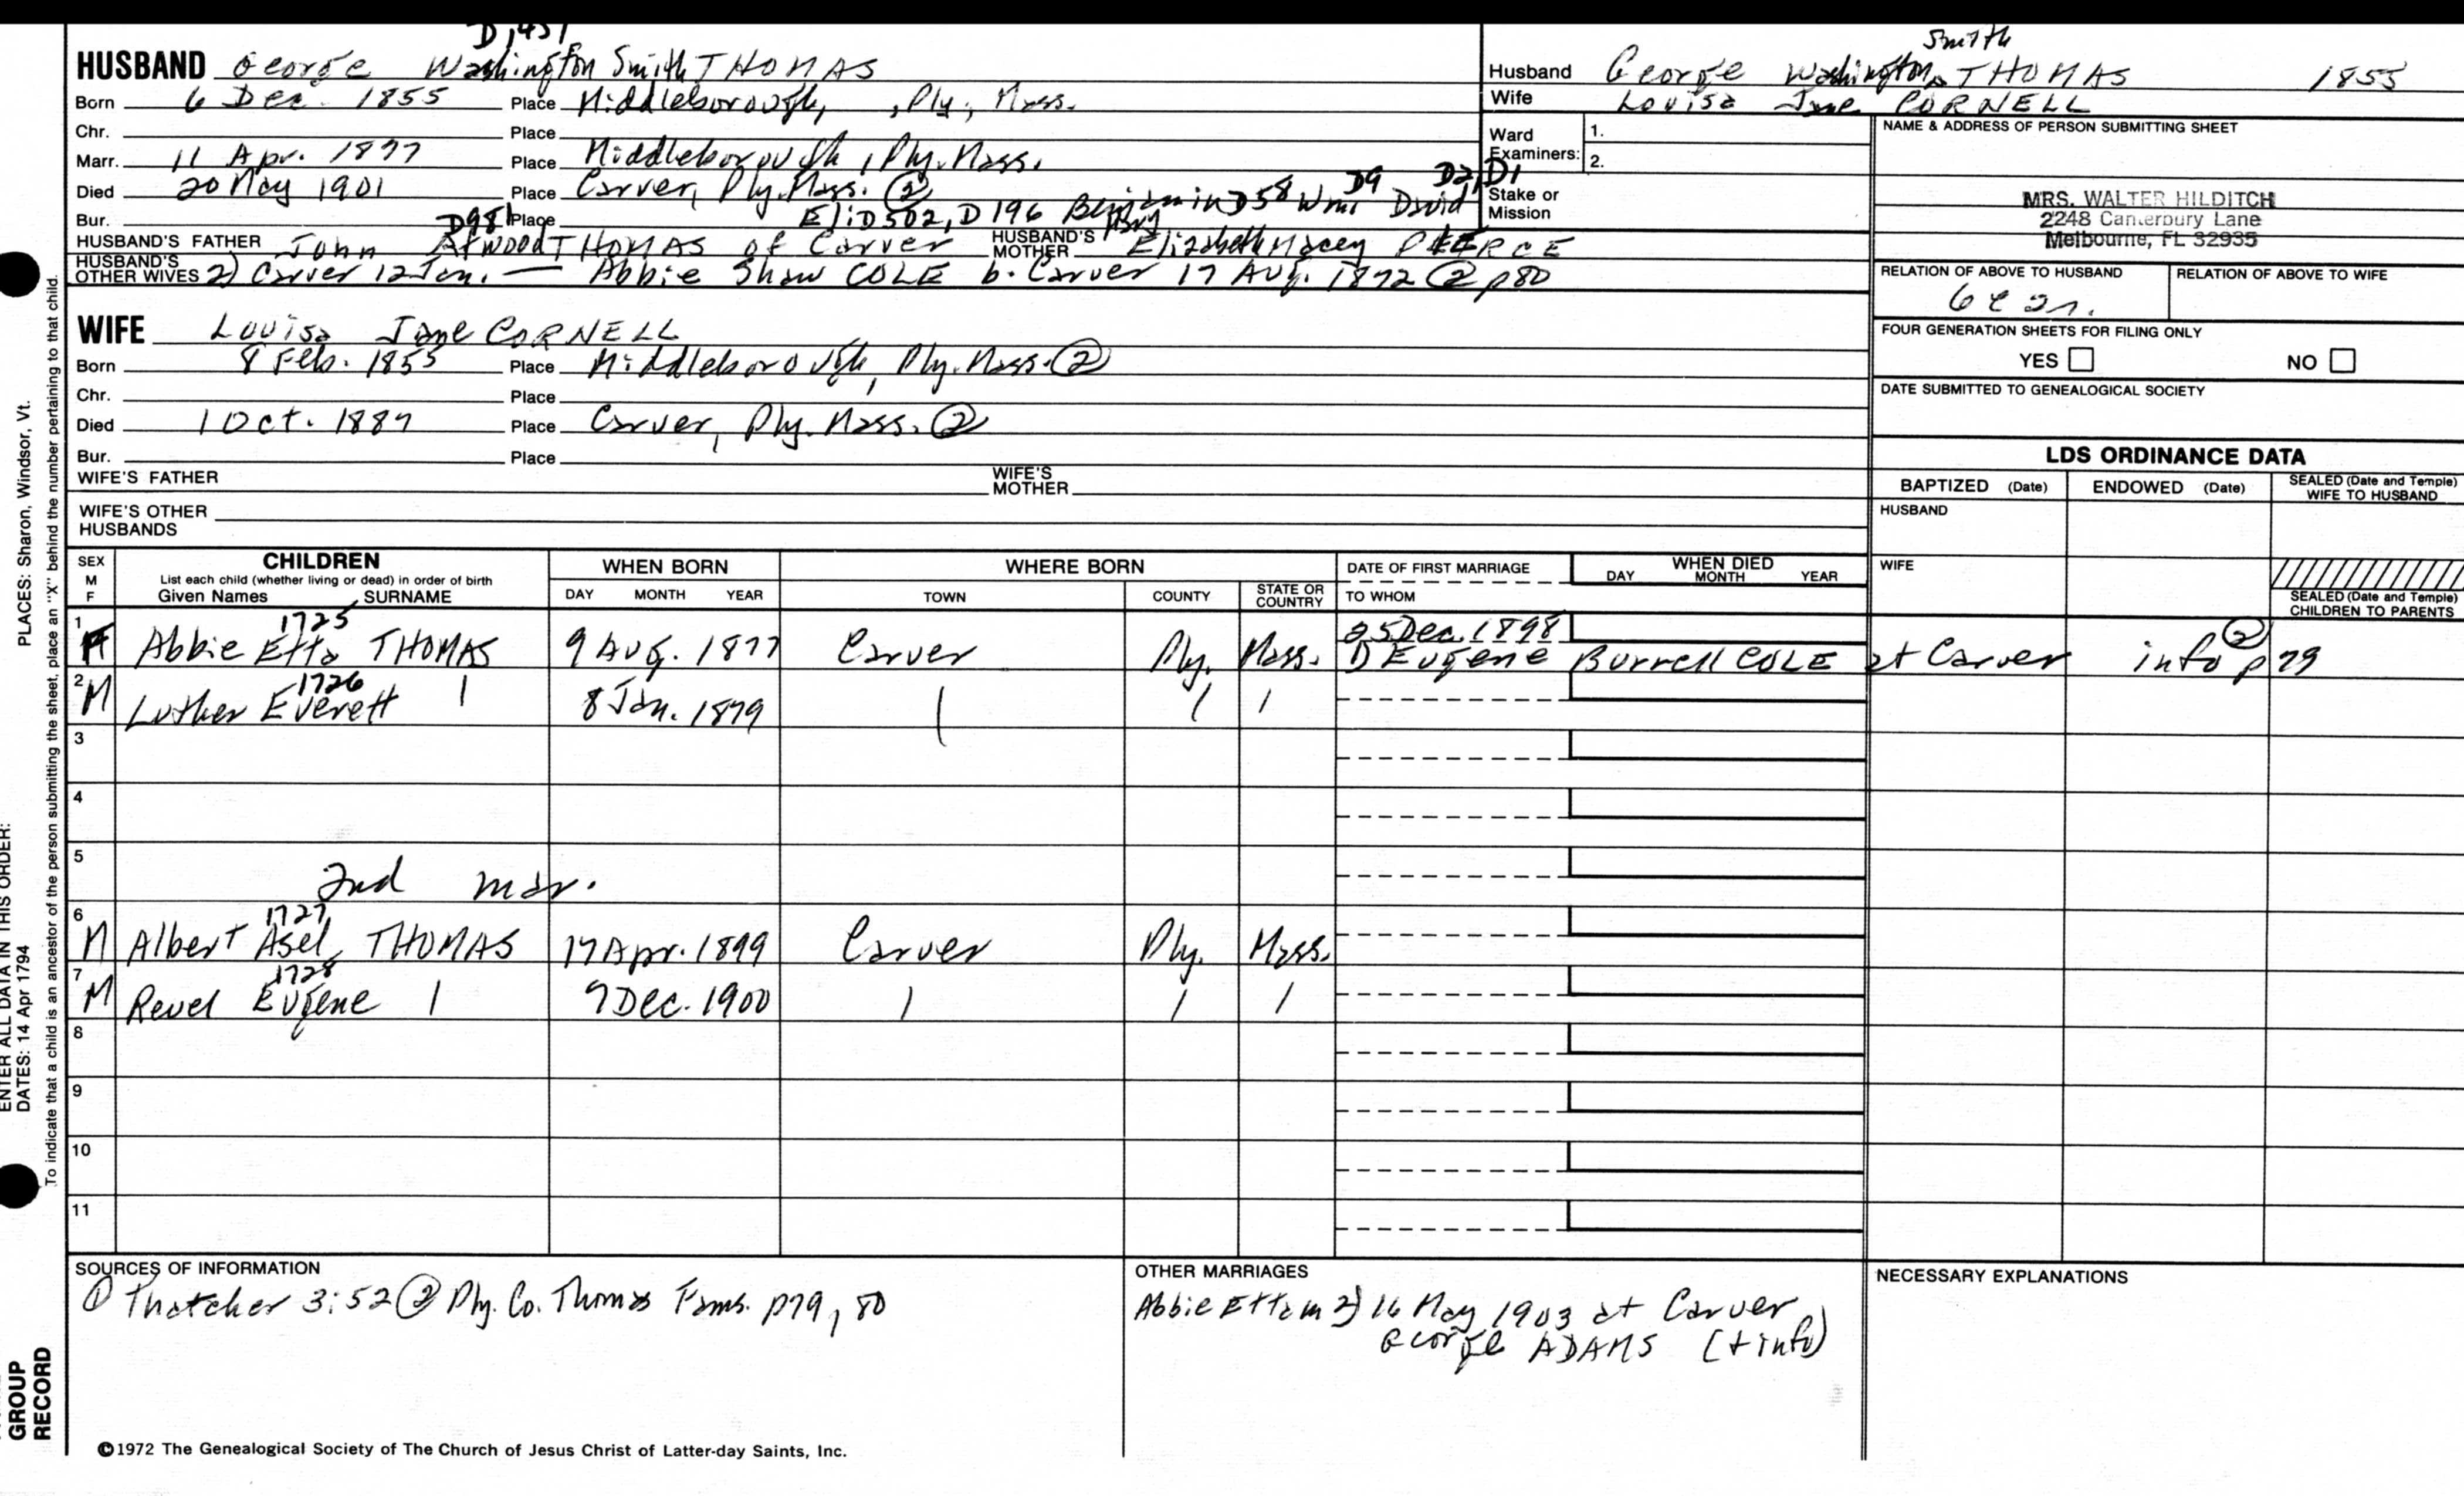 D,451
HUSBAND George Washington Smith THOMAS
Born 6 Dec. 1855 Place Middleborough, , Ply, Mass.
Chr. Place
Marr. 11 Apr. 1877 Place Middleborough, Ply. Mass.
Died 20 May 1901 Place Carver, Ply. Mass. ②
Bur. Place Eli D502, D196 Benjamin D58 Wm D9 David D2, D1
D981
HUSBAND'S FATHER John Atwood THOMAS of Carver HUSBAND'S MOTHER Elizabeth Macey PIERCE
HUSBAND'S OTHER WIVES 2) Carver 12 Jan. — Abbie Shaw COLE b. Carver 17 Aug. 1872 ② p80
WIFE Louisa Jane CORNELL
Born 8 Feb. 1855 Place Middleborough, Ply. Mass. ②
Chr. Place
Died 1 Oct. 1887 Place Carver, Ply. Mass. ②
Bur. Place
WIFE'S FATHER WIFE'S MOTHER
WIFE'S OTHER HUSBANDS
Smith
Husband George Washington THOMAS 1855
Wife Louisa Jane CORNELL
Ward Examiners: 1.
2.
Stake or Mission
NAME & ADDRESS OF PERSON SUBMITTING SHEET
MRS. WALTER HILDITCH
2248 Canterbury Lane
Melbourne, FL 32935
RELATION OF ABOVE TO HUSBAND RELATION OF ABOVE TO WIFE
FOUR GENERATION SHEETS FOR FILING ONLY
YES NO
DATE SUBMITTED TO GENEALOGICAL SOCIETY
LDS ORDINANCE DATA
BAPTIZED (Date) ENDOWED (Date) SEALED (Date and Temple) WIFE TO HUSBAND
HUSBAND
WIFE
SEALED (Date and Temple) CHILDREN TO PARENTS
SEX M F CHILDREN WHEN BORN WHERE BORN DATE OF FIRST MARRIAGE WHEN DIED
List each child (whether living or dead) in order of birth
Given Names SURNAME DAY MONTH YEAR TOWN COUNTY STATE OR COUNTRY TO WHOM DAY MONTH YEAR
1725 25 Dec. 1898 ②
1 F Abbie Etta THOMAS 9 Aug. 1877 Carver Ply. Mass. 1) Eugene Burrell COLE at Carver info p79
1726
2 M Luther Everett 8 Jan. 1879
3
4
5 2nd mar.
1727
6 M Albert Asel THOMAS 17 Apr. 1899 Carver Ply. Mass.
1728
7 M Revel Eugene 9 Dec. 1900
8
9
10
11
SOURCES OF INFORMATION
① Thatcher 3:52 ② Ply. Co. Thomas Fams. p79, 80
OTHER MARRIAGES
Abbie Etta m 2) 16 May 1903 at Carver
George ADAMS (+info)
NECESSARY EXPLANATIONS
©1972 The Genealogical Society of The Church of Jesus Christ of Latter-day Saints, Inc.
PLACES: Sharon, Windsor, Vt.
ENTER ALL DATA IN THIS ORDER:
DATES: 14 Apr 1794
To indicate that a child is an ancestor of the person submitting the sheet, place an "X" behind the number pertaining to that child.
GROUP
RECORD